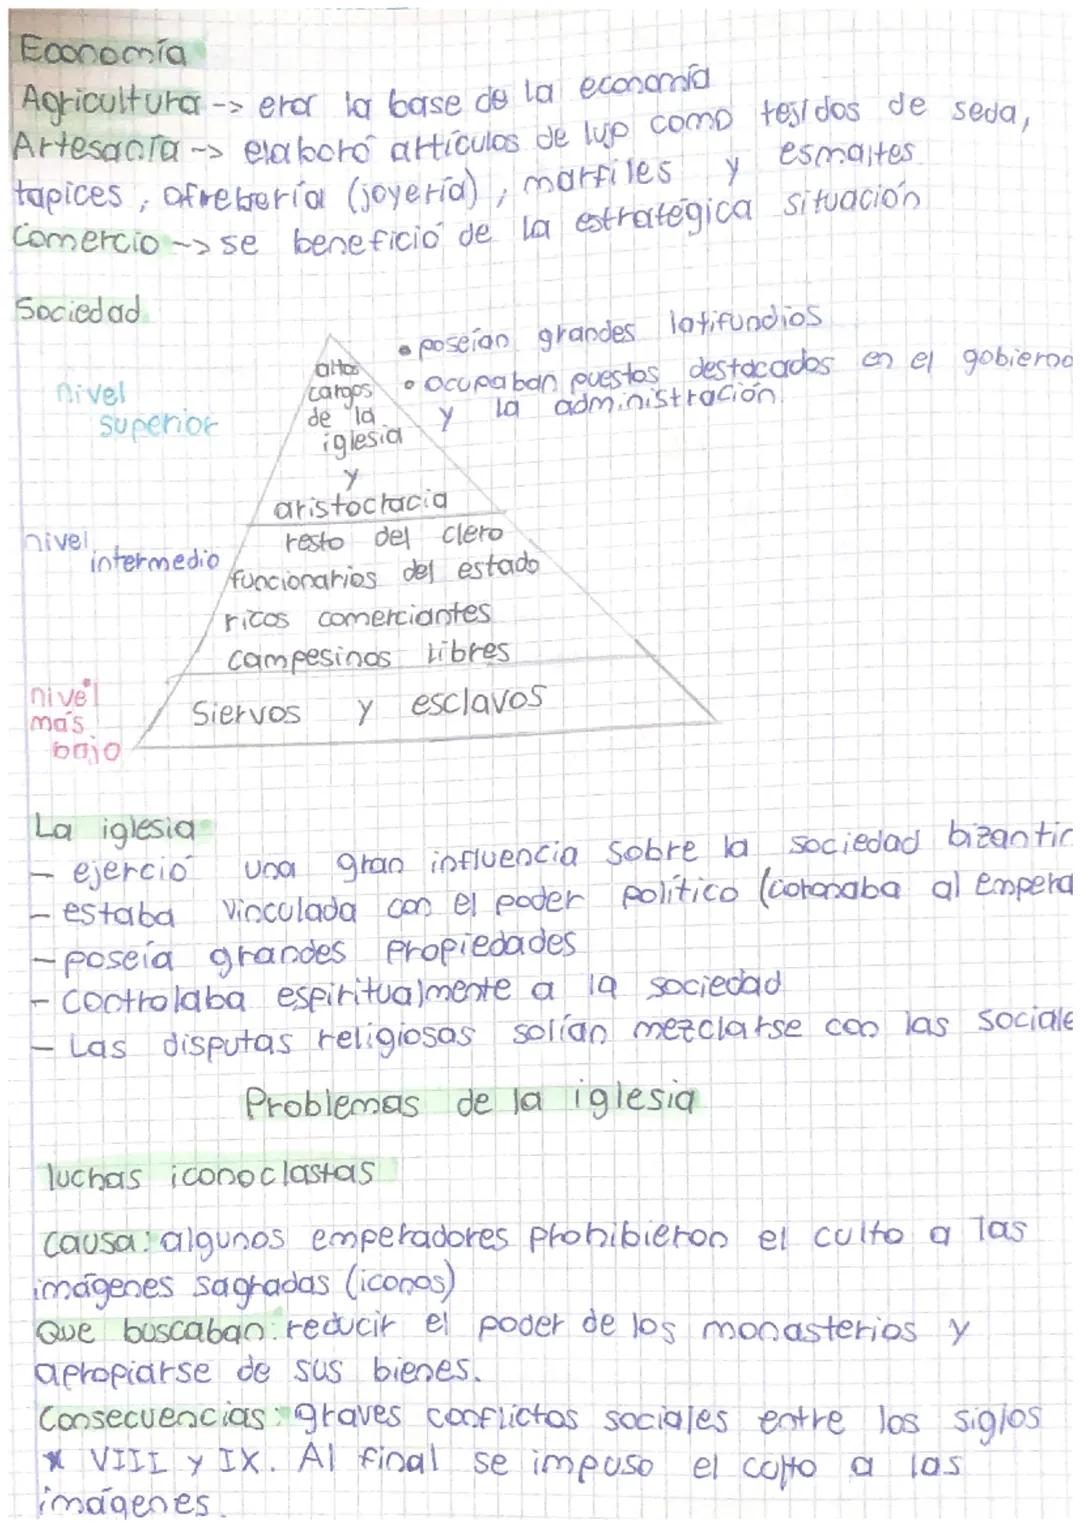 Economía
Agricultura -> era la base de la economía
Artesanía -> elaboró artículos de lujo como tejidos de seda,
tapices, ofrebrería (joyería), marfiles y esmaltes
Comercio -> se benefició de la estratégica situación
Sociedad
• poseían grandes latifundios
• ocupaban puestos destacados en el gobierno
y la administración
nivel
superior
altos
cargos
de la
iglesia
y
aristocracia
nivel
intermedio
resto del clero
funcionarios del estado
ricos comerciantes
campesinos libres
nivel
más
bajo
Siervos y esclavos
La iglesia
- ejerció una gran influencia sobre la sociedad bizantin
- estaba vinculada con el poder político (coronaba al empera
- poseía grandes propiedades
- controlaba espiritualmente a la sociedad
- Las disputas religiosas solían mezclarse con las sociale
Problemas de la iglesia
luchas iconoclastas
causa: algunos emperadores prohibieron el culto a las
imágenes sagradas (iconos)
Que buscaban: reducir el poder de los monasterios y
apropiarse de sus bienes.
Consecuencias: graves conflictos sociales entre los siglos
VIII y IX. Al final se impuso el culto a las
imágenes.